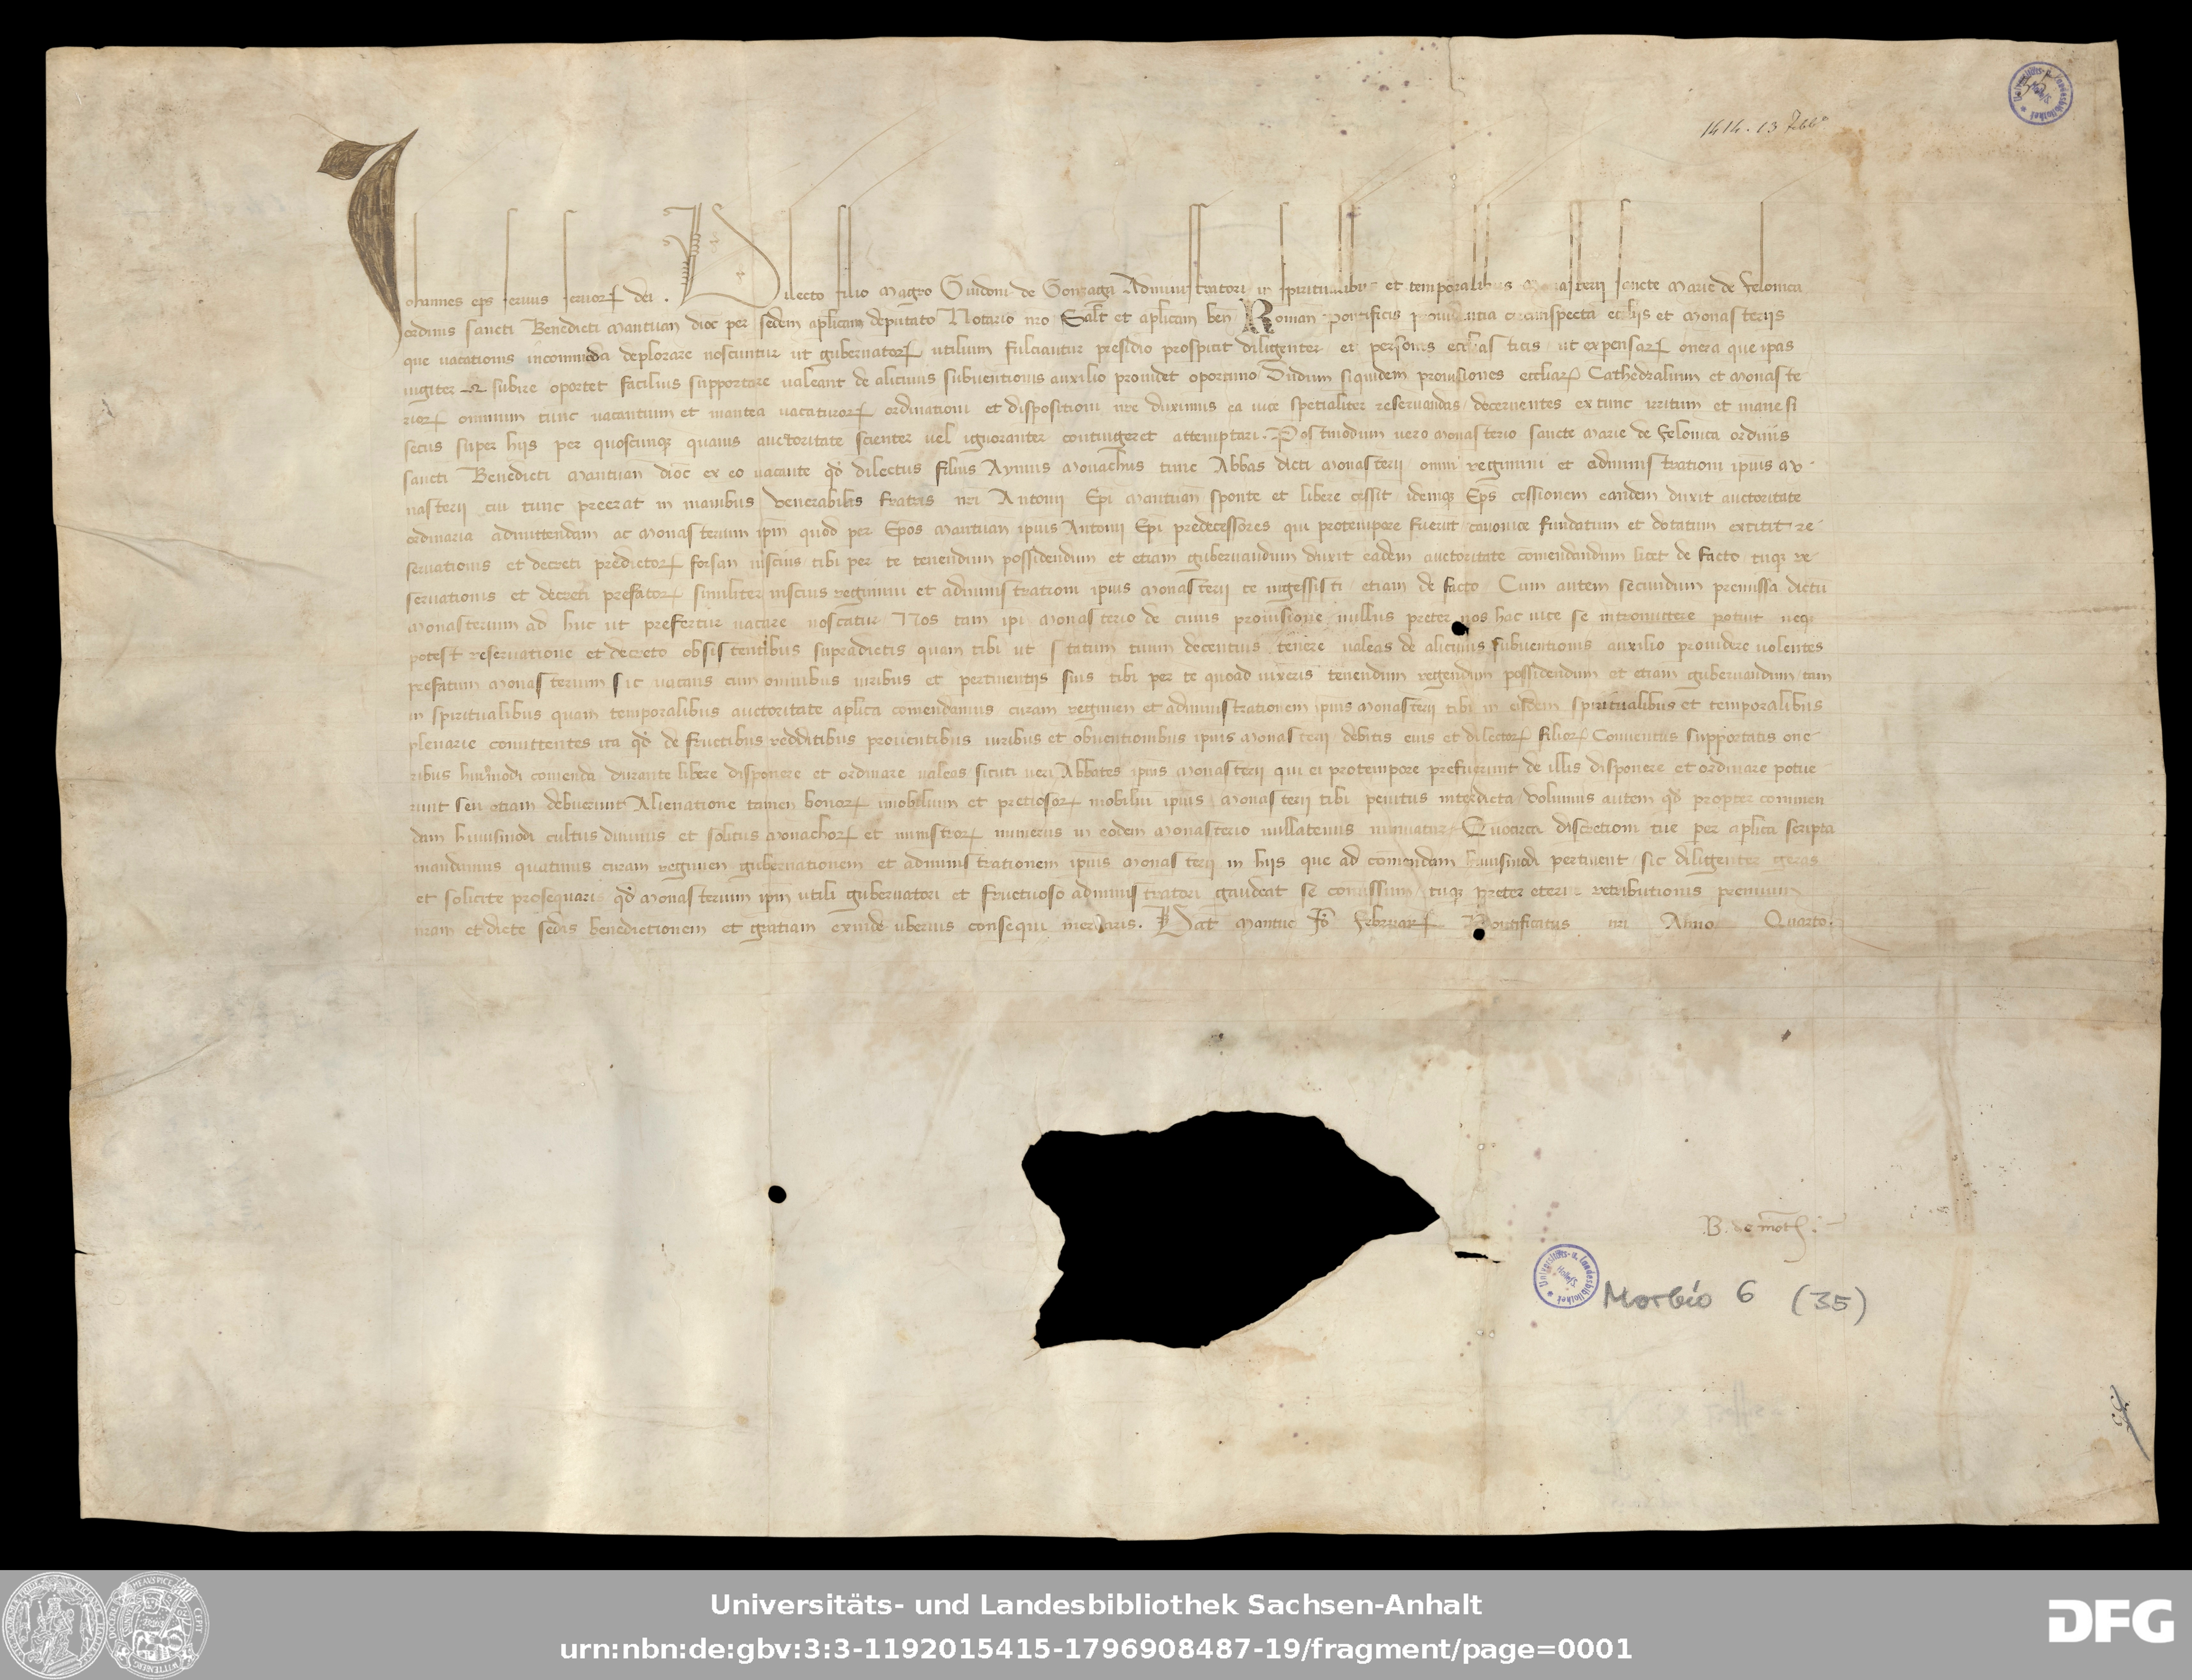 1414. 13 Febb°
Johannes eps servus servorꝝ dei. Dilecto filio Magro Guidoni de Gonzaga Administratori in spiritualibus et temporalibus Monasterii sancte Marie de Felonica
ordinis sancti Benedicti Mantuan dioc per sedem aplicam deputato Notario nro Salt et aplicam ben Roman pontificis providentia circumspecta eccliis et Monasteriis
que vacationis incommoda deplorare noscuntur ut gubernatorꝝ utilium fulciantur presidio prospicit diligenter et personis eccliasticis ut expensarꝝ onera que ipas
iugiter subire oportet facilius supportare valeant de alicuius subventionis auxilio providet oportuno Dudum siquidem provisiones eccliarꝝ Cathedralium et Monaste
riorꝝ omnium tunc vacantium et inantea vacaturorꝝ ordinationi et dispositioni nre duximus ea vice specialiter reservandas decernentes extunc irritum et inane si
secus super hiis per quoscunqꝫ quavis auctoritate scienter vel ignoranter contingeret attemptari. Postmodum vero Monasterio sancte Marie de Felonica ordinis
sancti Benedicti Mantuan dioc ex eo vacante qd dilectus filius Aymus Monachus tunc Abbas dicti Monasterii omni regimini et administrationi ipius Mo
nasterii cui tunc preerat in manibus venerabilis fratris nri Antonii Epi Mantuan sponte et libere cessit idemqꝫ Eps cessionem eandem duxit auctoritate
ordinaria admittendam ac Monasterium ipm quod per Epos Mantuan ipius Antonii Epi predecessores qui protempore fuerut canonice fundatum et dotatum extitit re
servationis et decreti predictorꝝ forsan inscius tibi per te tenendum possidendum et etiam gubernandum duxit eadem auctoritate comendandum licet de facto tuqꝫ re
servationis et decreti prefatorꝝ similiter inscius regimini et administrationi ipius Monasterii te ingessisti etiam de facto Cum autem secundum premissa dictu
Monasterium ad huc ut prefertur vacare noscatur Nos tam ipi Monasterio de cuius provisione nullus preter nos hac vice se intromittere potuit neqꝫ
potest reservatione et decreto obsistentibus supradictis quam tibi ut statum tuum decentius tenere valeas de alicuius subventionis auxilio providere volentes
prefatum Monasterium sic vacans cum omnibus iuribus et pertinentiis suis tibi per te quoad vixeris tenendum regendum possidendum et etiam gubernandum tam
in spiritualibus quam temporalibus auctoritate aplica comendamus curam regimen et administrationem ipius Monasterii tibi in eisdem spiritualibus et temporalibus
plenarie comittentes ita qd de fructibus redditibus proventibus iuribus et obventionibus ipius Monasterii debitis eius et dilectorꝝ filiorꝝ Conventus supportatis one
ribus huiusmodi comenda durante libere disponere et ordinare valeas sicuti veri Abbates ipius Monasterii qui ei protempore prefuerunt de illis disponere et ordinare potue
runt seu etiam debuerunt Alienatione tamen bonorꝝ imobilium et pretiosorꝝ mobiliu ipius Monasterii tibi penitus interdicta volumus autem qd propter commen
dam huiusmodi cultus divinus et solitus Monachorꝝ et ministrorꝝ numerus in eodem Monasterio nullatenus minuatur Quocirca discretioni tue per aplica scripta
mandamus quatinus curam regimen gubernationem et administrationem ipius Monasterii in hiis que ad comendam huiusmodi pertinent sic diligenter geras
et solicite prosequaris qd Monasterium ipm utili gubernatori et fructuoso administratori gaudeat se comissum tuqꝫ preter eterne retributionis premium
nram et dicte sedis benedictionem et gratiam exinde uberius consequi merearis. Dat Mantue Id Februarꝝ Pontificatus nri Anno Quarto.
B. de
Morbio 6 (35)
35
Universitäts- und Landesbibliothek Sachsen-Anhalt
urn:nbn:de:gbv:3:3-1192015415-1796908487-19/fragment/page=0001
DFG